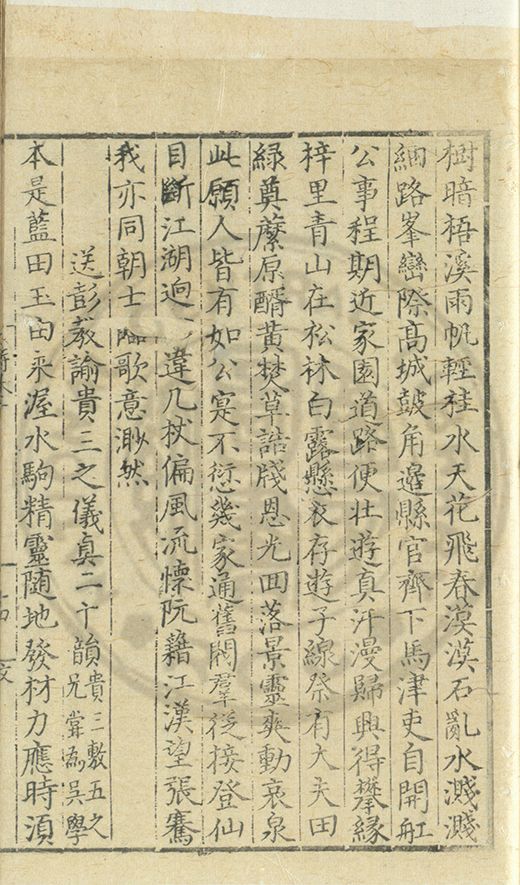 樹暗梧溪雨帆輕桂水天花飛春漠漠石亂水濺濺
細路峯巒際高城鼓角邊縣官齊下馬津吏自開舡
公事程期近家園道路便壯遊真汗漫歸興得攀緣
梓里青山在松楸白露懸衣存遊子線祭有大夫田
綠奠蘪原醑黃焚草誥牋恩光回落景靈爽動哀泉
此願人皆有如公寔不愆幾家通舊閥羣從接登仙
目斷江湖逈心違几杖偏風流懷阮籍江漢望張騫
我亦同朝士臨歌意渺然
送彭教諭貴三之儀真二十韻貴三敷五之兄嘗為吳學
本是藍田玉由來渥水駒精靈隨地發材力應時湏